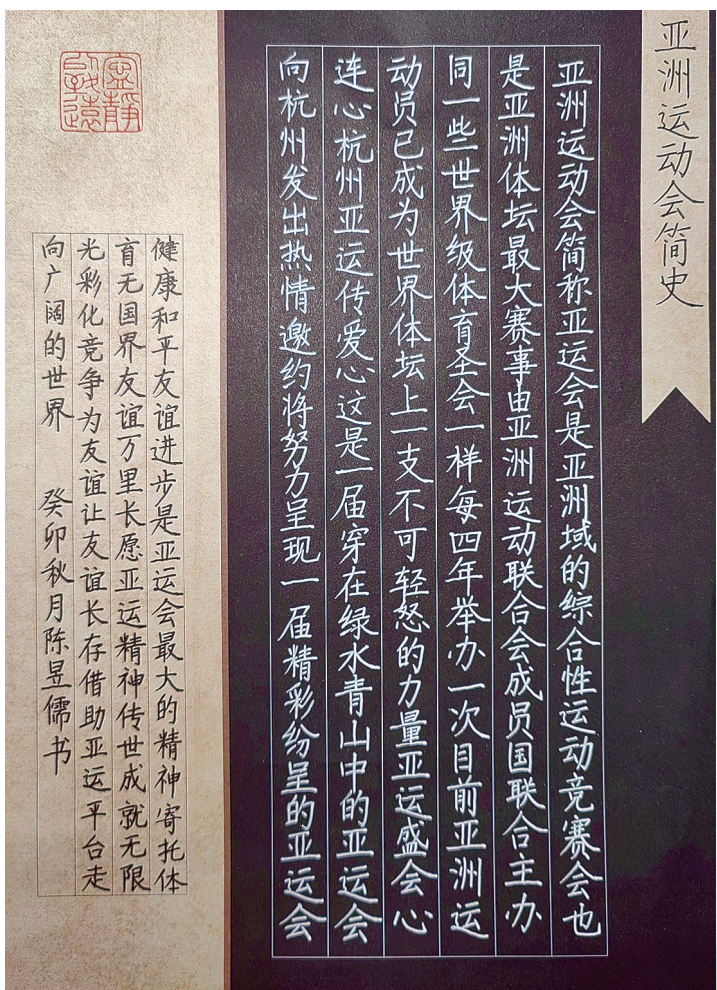 亚洲运动会简史
亚洲运动会简称亚运会是亚洲域的综合性运动竞赛会也
是亚洲体坛最大赛事由亚洲运动联合会成员国联合主办
同一些世界级体育圣会一样每四年举办一次目前亚洲运
动员已成为世界体坛上一支不可轻怒的力量亚运盛会心
连心杭州亚运传爱心这是一届穿在绿水青山中的亚运会
向杭州发出热情邀约将努力呈现一届精彩纷呈的亚运会
健康和平友谊进步是亚运会最大的精神寄托体
育无国界友谊万里长愿亚运精神传世成就无限
光彩化竞争为友谊让友谊长存借助亚运平台走
向广阔的世界 癸卯秋月陈昱儒书